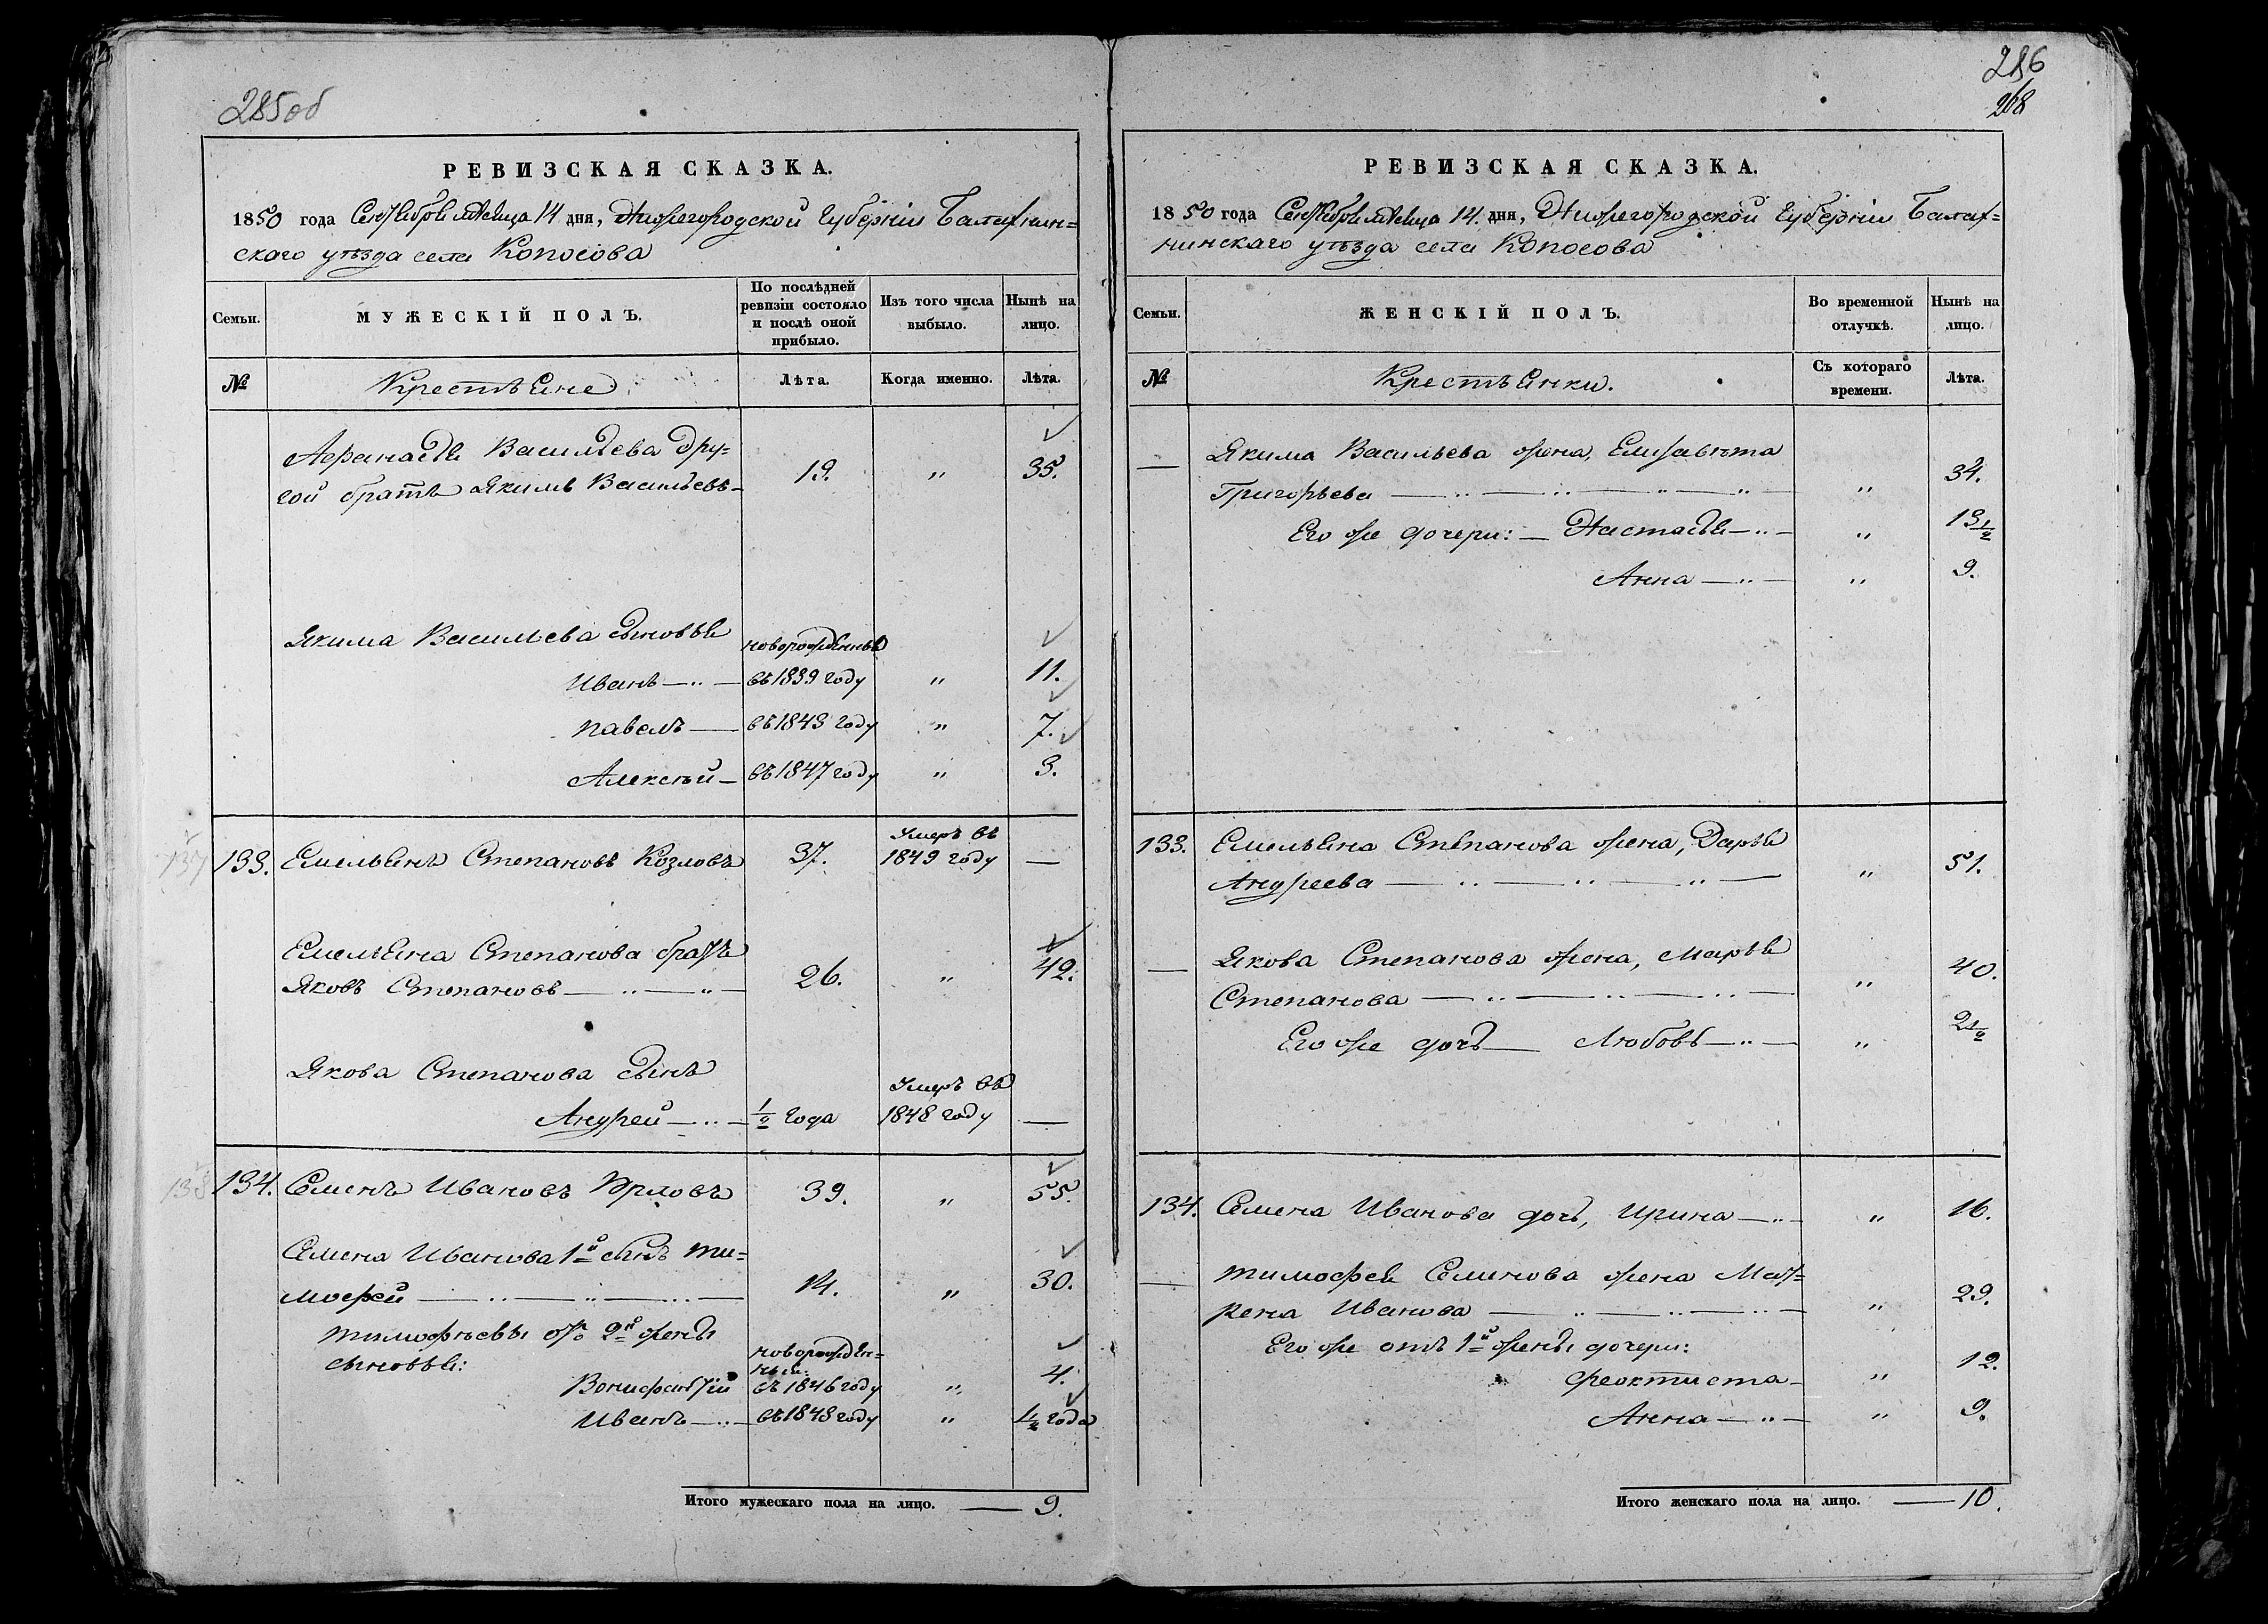 285об
РЕВИЗСКАЯ СКАЗКА.
1850 года Сентября мѣсяца 14 дня, Нижегородской Губерніи Балахнин=
скаго уѣзда села Копосова
Семьи.
МУЖЕСКІЙ ПОЛЪ.
По послѣдней ревизіи состояло и послѣ оной прибыло.
Изъ того числа выбыло.
Нынѣ на лицо.
№
Крестьяне
Лѣта.
Когда именно.
Лѣта.
Афанасья Васильева дру=
гой братъ Якимъ Васильевъ— 19. „ 35.
Якима Васильева сыновья новорожденные
Иванъ — въ 1839 году „ 11.
Павелъ — въ 1843 году „ 7.
Алексѣй — въ 1847 году „ 3.
137
Умеръ въ
133. Емельянъ Степановъ Козловъ 37. 1849 году —
Емельяна Степанова братъ
Яковъ Степановъ — 26. „ 42.
Якова Степанова сынъ
Умеръ въ
Андрей — 1/2 года 1848 году —
138
134. Семенъ Ивановъ Орловъ 39. „ 55.
Семена Иванова 1й сынъ Ти=
мофей — 14. „ 30.
Тимофѣевы отъ 2й жены
сыновья: новорожден=
ный:
Вонифантій въ 1846 году „ 4.
Иванъ — въ 1848 году „ 1 1/2 года
Итого мужескаго пола на лицо. — 9.
286
268
РЕВИЗСКАЯ СКАЗКА.
1850 года Сентября мѣсяца 14. дня, Нижегородской Губерніи Балах=
нинскаго уѣзда села Копосова
Семьи.
ЖЕНСКІЙ ПОЛЪ.
Во временной отлучкѣ.
Нынѣ на лицо.
№
Крестьянки.
Съ котораго времени.
Лѣта.
— Якима Васильева жена, Елизавета
Григорьева — „ 34.
Его же дочери: — Настасья — „ 13 1/2
Анна — „ 9.
133. Емельяна Степанова жена, Дарья
Андреева — „ 51.
— Якова Степанова жена, Марья
Степанова — „ 40.
Его же дочь — Любовь — „ 2 1/2
134. Семена Иванова дочь, Ирина — „ 16.
— Тимофея Семенова жена Мат=
рена Иванова — „ 29.
Его же отъ 1й жены дочери:
Феоктиста — „ 12.
Анна — „ 9.
Итого женскаго пола на лицо. — 10.